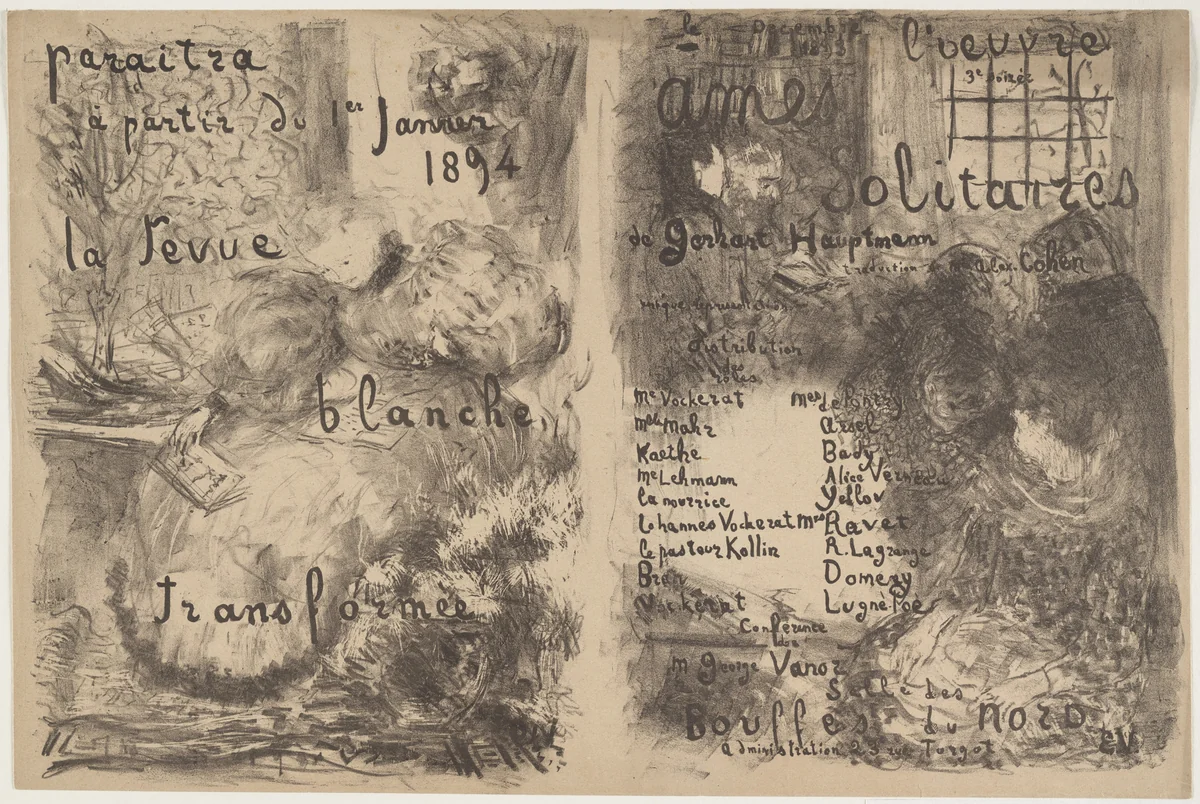 paraitra
à partir du 1er Janvier
1894
la revue
blanche
transformée
le Décembre
1893
l'œuvre
3e soirée
ames
solitaires
de Gerhart Hauptmann
traduction de Mr alex. Cohen
distribution
des
rôles
Me Vockerat Mes de Pontry
Mlle Mahr Arsel
Kaethe Bady
Me Lehmann Alice Verneau
la nourrice Yellov
Johannes Vockerat Mrs Ravet
le pasteur Kollin R. Lagrange
Bran Domery
Vockerat Lugné Poe
Conférence
de
Mr George Vanor
Salle des
Bouffes du Nord
administration 23 rue Turgot
EV